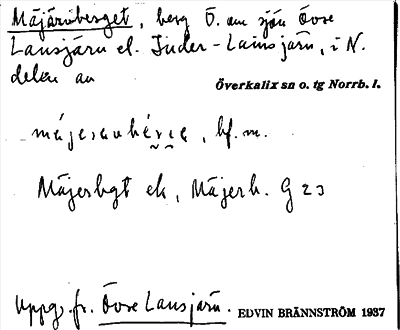 Mäjärvberget, berg Ö. om sjön Övre
Lansjärv el. Inder-Lansjärv, i N.
delen av
Överkalix sn o. tg Norrb. l.
bf. m.
Mäjerbgt ek, Mäjerb. G 23
Uppg. fr. Övre Lansjärv. EDVIN BRÄNNSTRÖM 1937